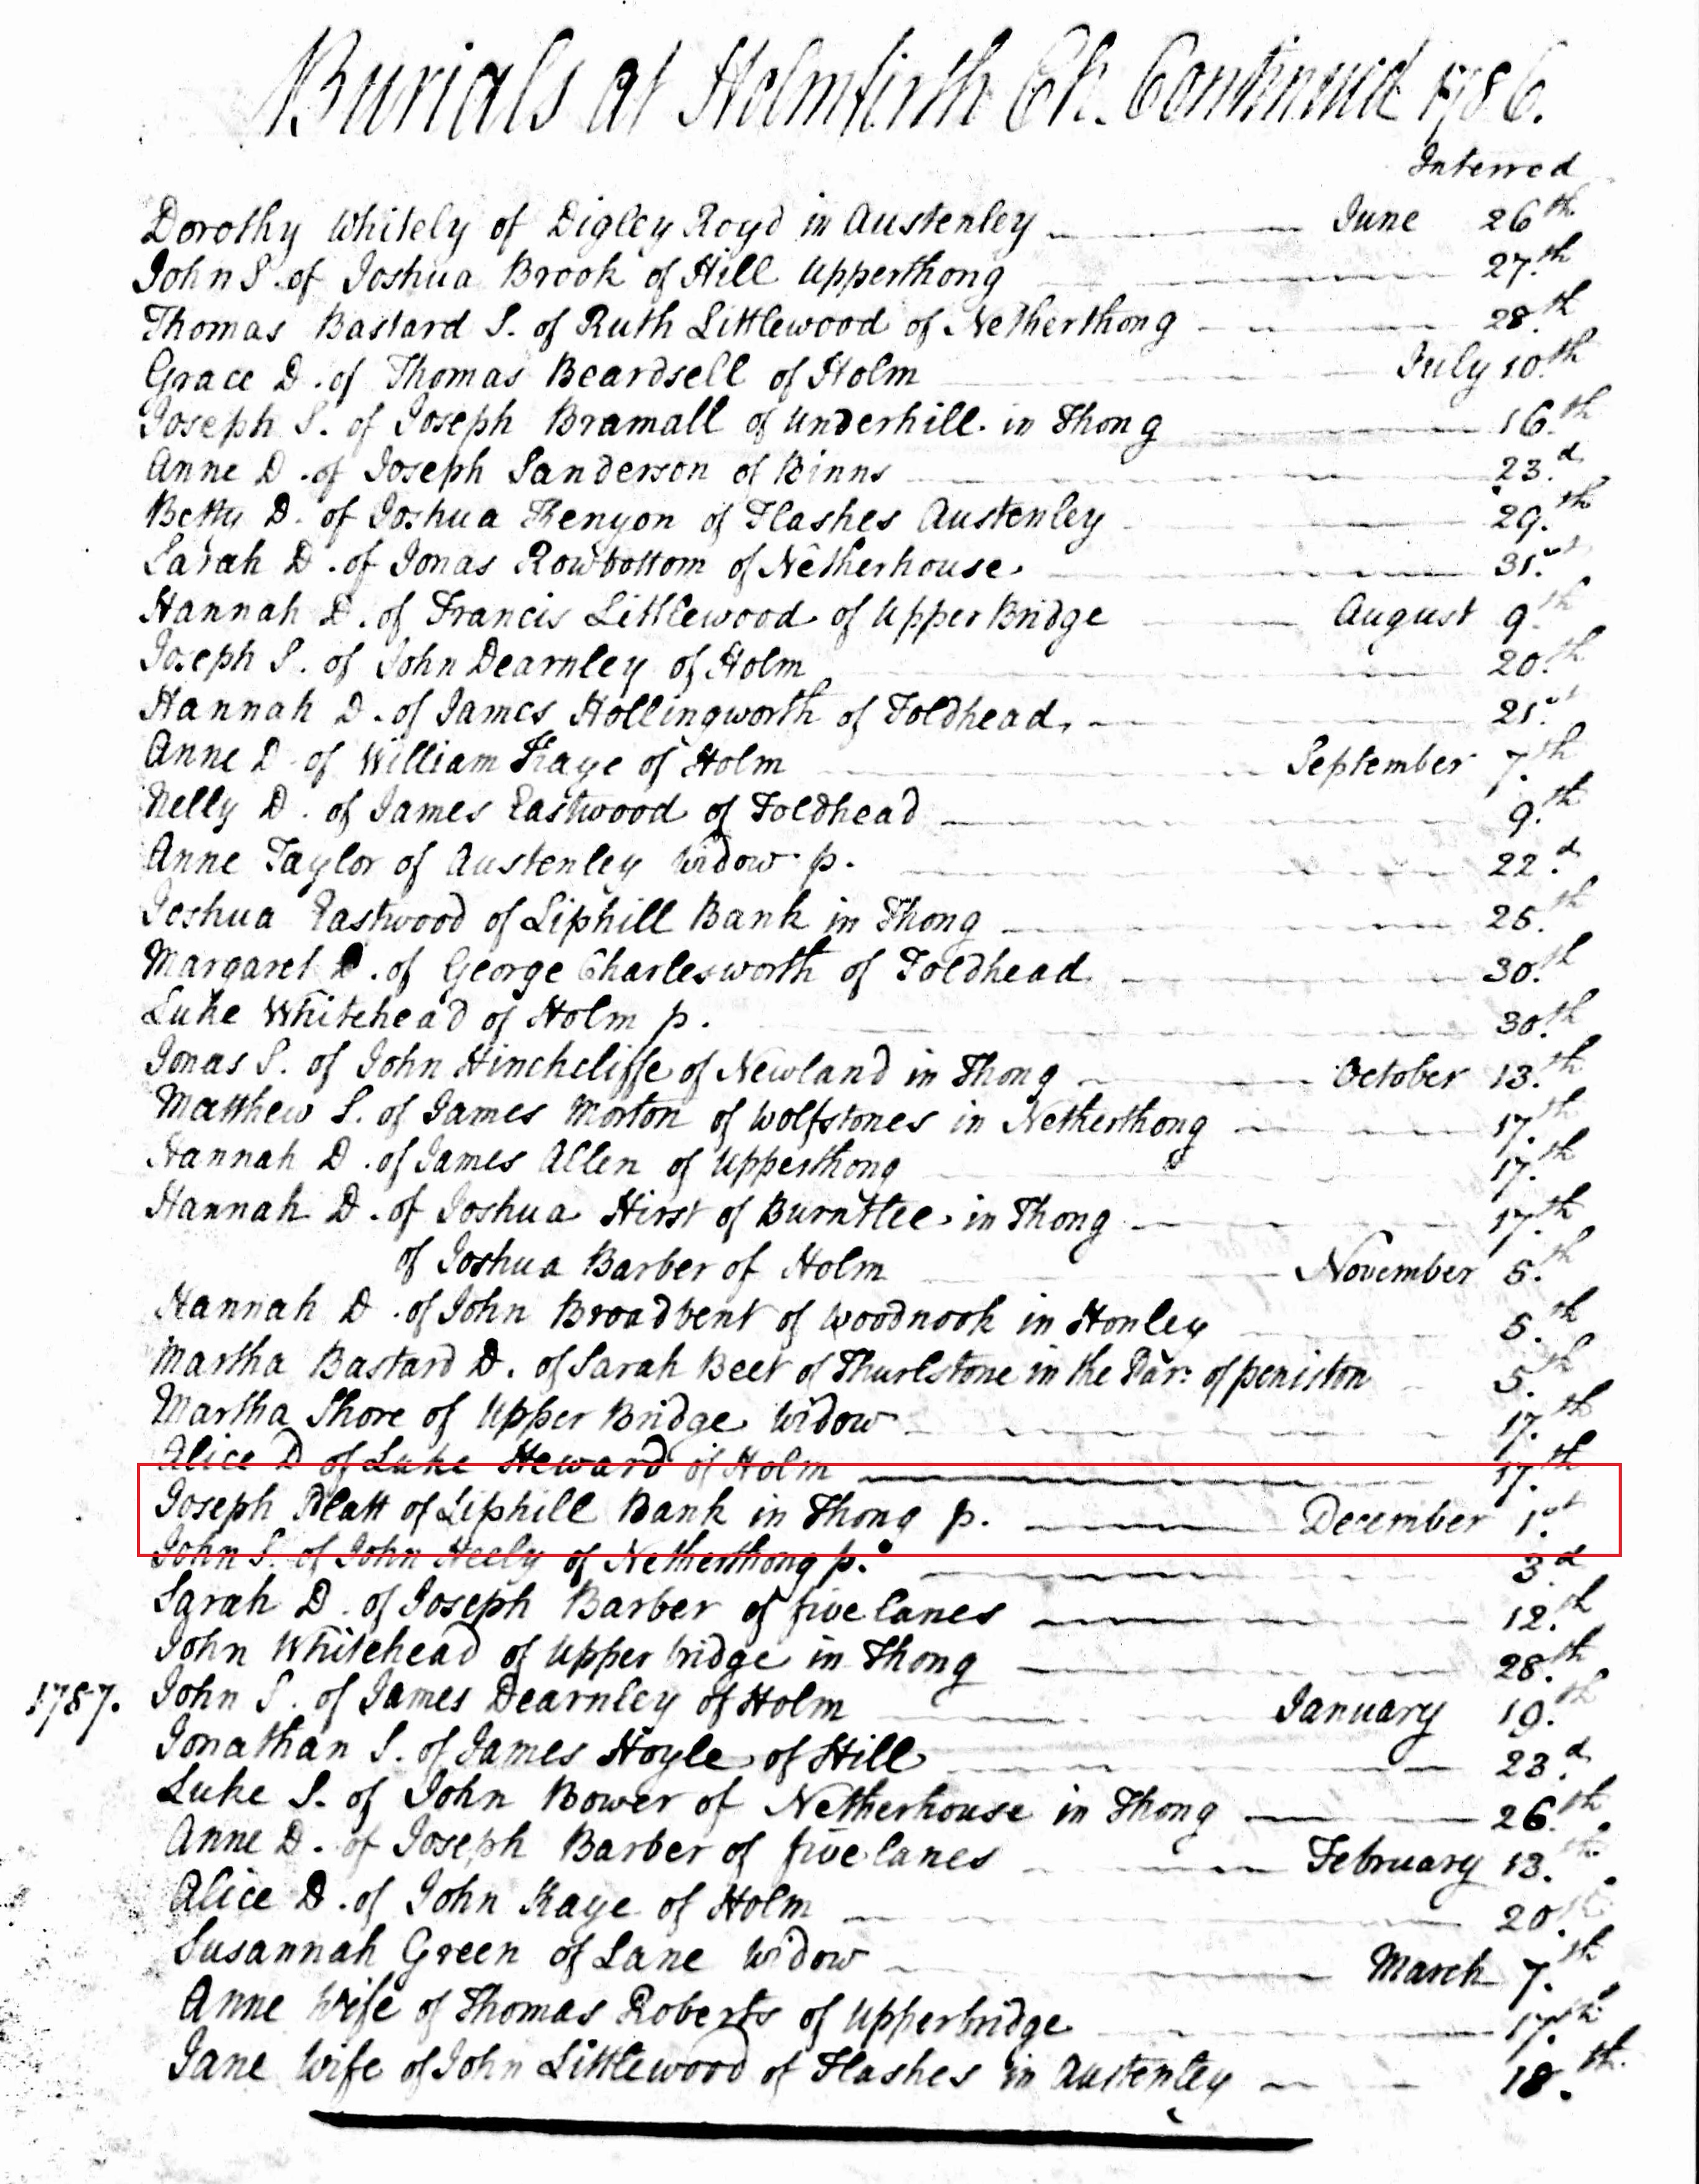 Burials at Holmfirth Ch. Continued 1786.
Interred
Dorothy Whitely of Digley Royd in Austenley June 26th
John S. of Joshua Brook of Hill Upperthong 27.th
Thomas Bastard S. of Ruth Littlewood of Netherthong 28.th
Grace D. of Thomas Beardsell of Holm July 10.th
Joseph S. of Joseph Bramall of Underhill in Thong 16.th
Anne D. of Joseph Sanderson of Binns 23.d
Betty D. of Joshua Kenyon of Flashes Austenley 29.th
Sarah D. of Jonas Rowbottom of Netherhouse 31.st
Hannah D. of Francis Littlewood of Upper Bridge August 9.th
Joseph S. of John Dearnley of Holm 20.th
Hannah D. of James Hollingworth of Foldhead 21.st
Anne D. of William Kaye of Holm September 7.th
Nelly D. of James Eastwood of Foldhead 9.th
Anne Taylor of Austenley Widow p. 22.d
Joshua Eastwood of Liphill Bank in Thong 25.th
Margaret D. of George Charlesworth of Foldhead 30.th
Luke Whitehead of Holm p. 30.th
Jonas S. of John Hinchcliffe of Newland in Thong October 13.th
Matthew S. of James Morton of Wolfstones in Netherthong 17.th
Hannah D. of James Allen of Upperthong 17.th
Hannah D. of Joshua Hirst of Burntlee in Thong 17.th
of Joshua Barber of Holm November 5.th
Hannah D. of John Broadbent of Woodnook in Honley 5.th
Martha Bastard D. of Sarah Beet of Thurlstone in the Par: of peniston 5.th
Martha Shore of Upper Bridge Widow 17.th
Alice D of Luke Heward of Holm 17.th
Joseph Platt of Liphill Bank in Thong p. December 1.st
John S. of John Heely of Netherthong p. 3.d
Sarah D. of Joseph Barber of five lanes 12.th
John Whitehead of Upper bridge in Thong 28.th
1787. John S. of James Dearnley of Holm January 19.th
Jonathan S. of James Hoyle of Hill 23.d
Luke S. of John Bower of Netherhouse in Thong 26.th
Anne D. of Joseph Barber of five lanes February 13.th
Alice D. of John Kaye of Holm 20.th
Susannah Green of Lane Widow March 7.th
Anne Wife of Thomas Roberts of Upperbridge 17.th
Jane Wife of John Littlewood of Flashes in Austenley 18.th